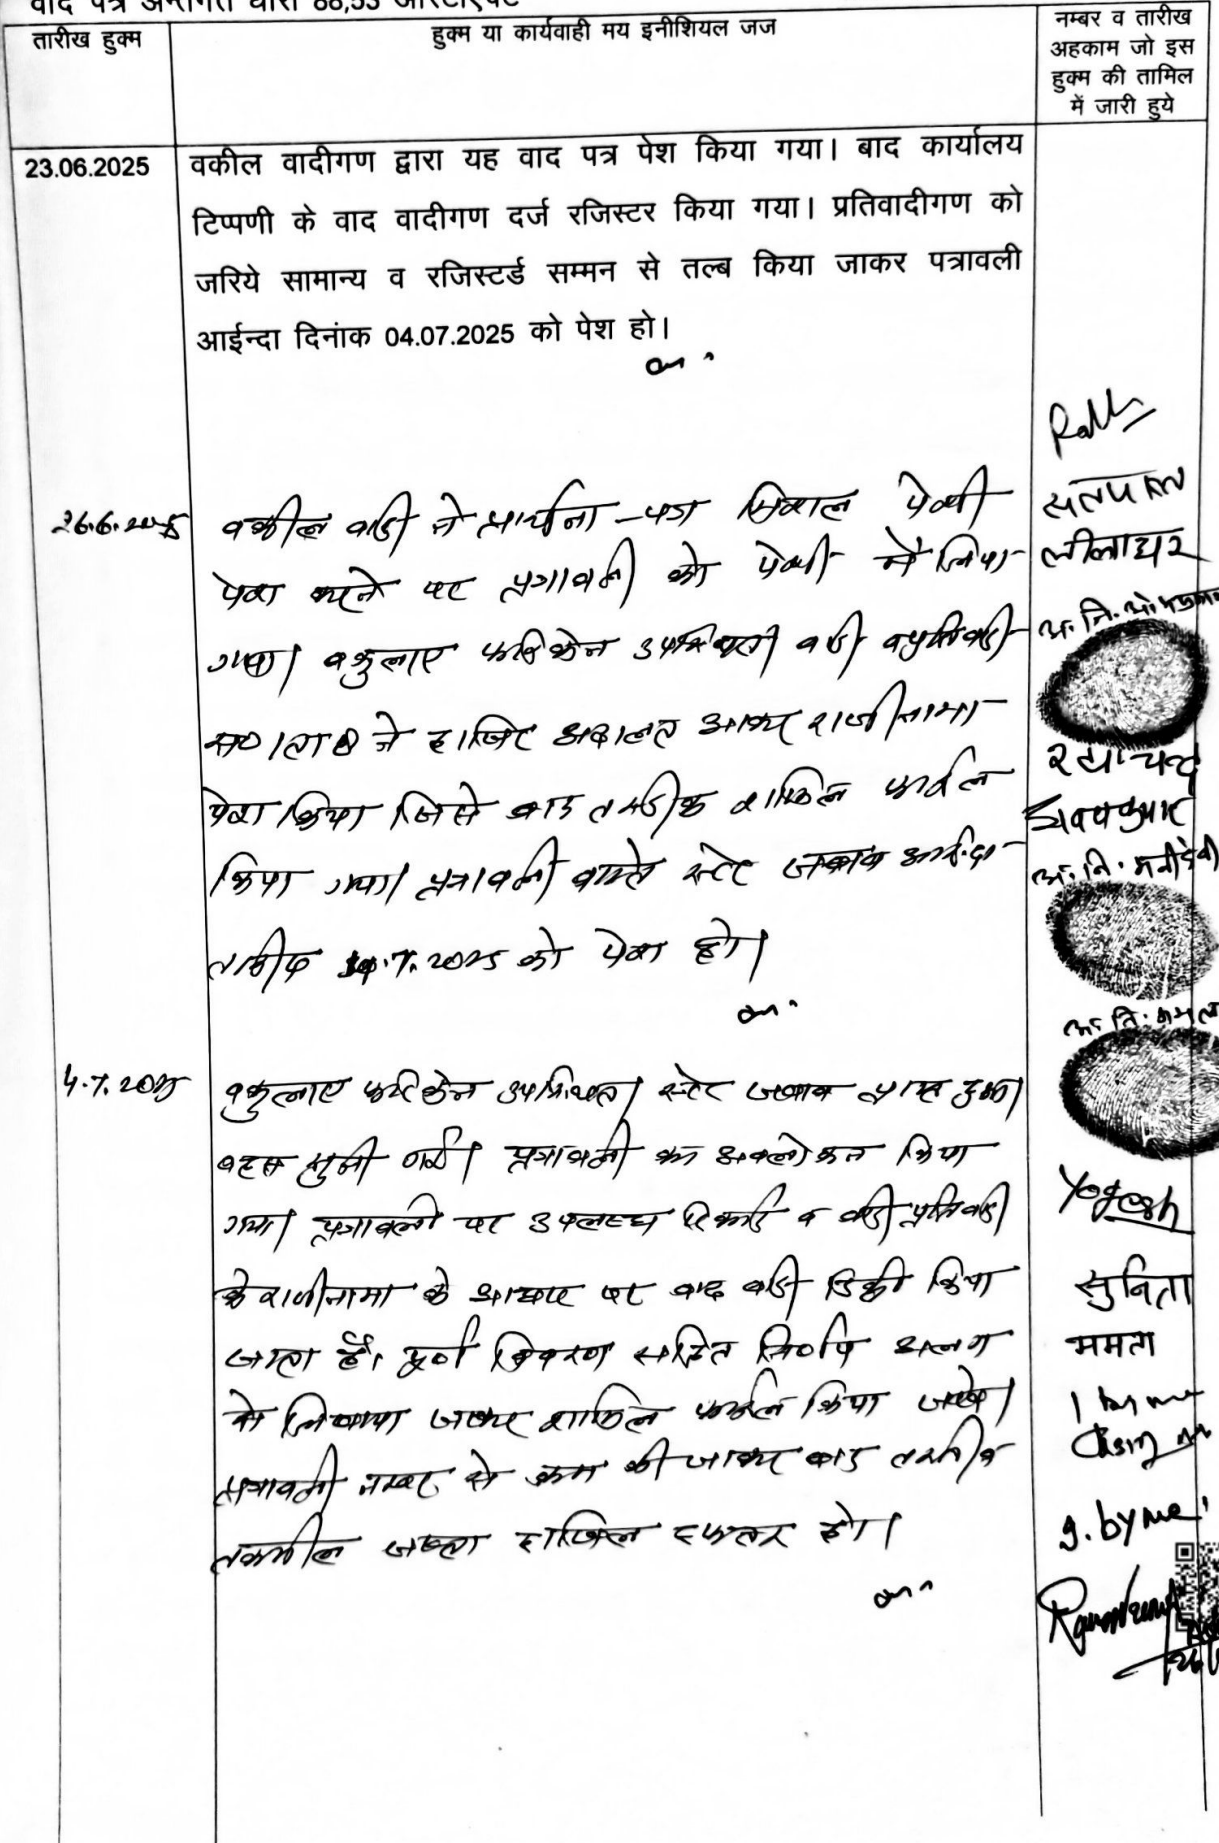 वाद पत्र अन्तर्गत धारा 88,53 आरटीएक्ट
तारीख हुक्म
हुक्म या कार्यवाही मय इनीशियल जज
नम्बर व तारीख
अहकाम जो इस
हुक्म की तामिल
में जारी हुये
23.06.2025
वकील वादीगण द्वारा यह वाद पत्र पेश किया गया। बाद कार्यालय
टिप्पणी के वाद वादीगण दर्ज रजिस्टर किया गया। प्रतिवादीगण को
जरिये सामान्य व रजिस्टर्ड सम्मन से तल्ब किया जाकर पत्रावली
आईन्दा दिनांक 04.07.2025 को पेश हो।
26.6.2025
वकील वादी ने प्रार्थना-पत्र पेशी
पेश करने पर पत्रावली को पेशी में लिया
गया। वकुलाए फरिकेन उपस्थित। वादी व प्रतिवादी
ने हाजिर अदालत आकर राजीनामा
पेश किया जिसे बाद तस्दीक शामिल फाईल
किया गया। पत्रावली वास्ते स्टेट जबाव आईन्दा
तारीख 4.7.2025 को पेश हो।
4.7.2025
वकुलाए फरिकेन उपस्थित। स्टेट जबाव प्राप्त हुआ।
बहस सुनी गई। पत्रावली का अवलोकन किया
गया। पत्रावली पर उपलब्ध रिकार्ड व वादी प्रतिवादी
के राजीनामा के आधार पर वाद वादी डिक्री किया
जाता है। पूर्ण विवरण सहित निर्णय अलग
से लिखाया जाकर शामिल फाईल किया जावे।
पत्रावली नम्बर से कम की जाकर बाद तरतीब
तकमील जाब्ता दाखिल दफ्तर हो।
सतपाल
लीलाधर
अ. नि.
अ. नि. मनीदेवी
अ. नि.
Yogesh
सुनिता
ममता
1 by me
g. by me